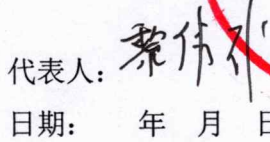 代表人：黎伟
日期： 年 月 日